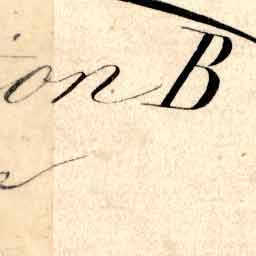 ion B